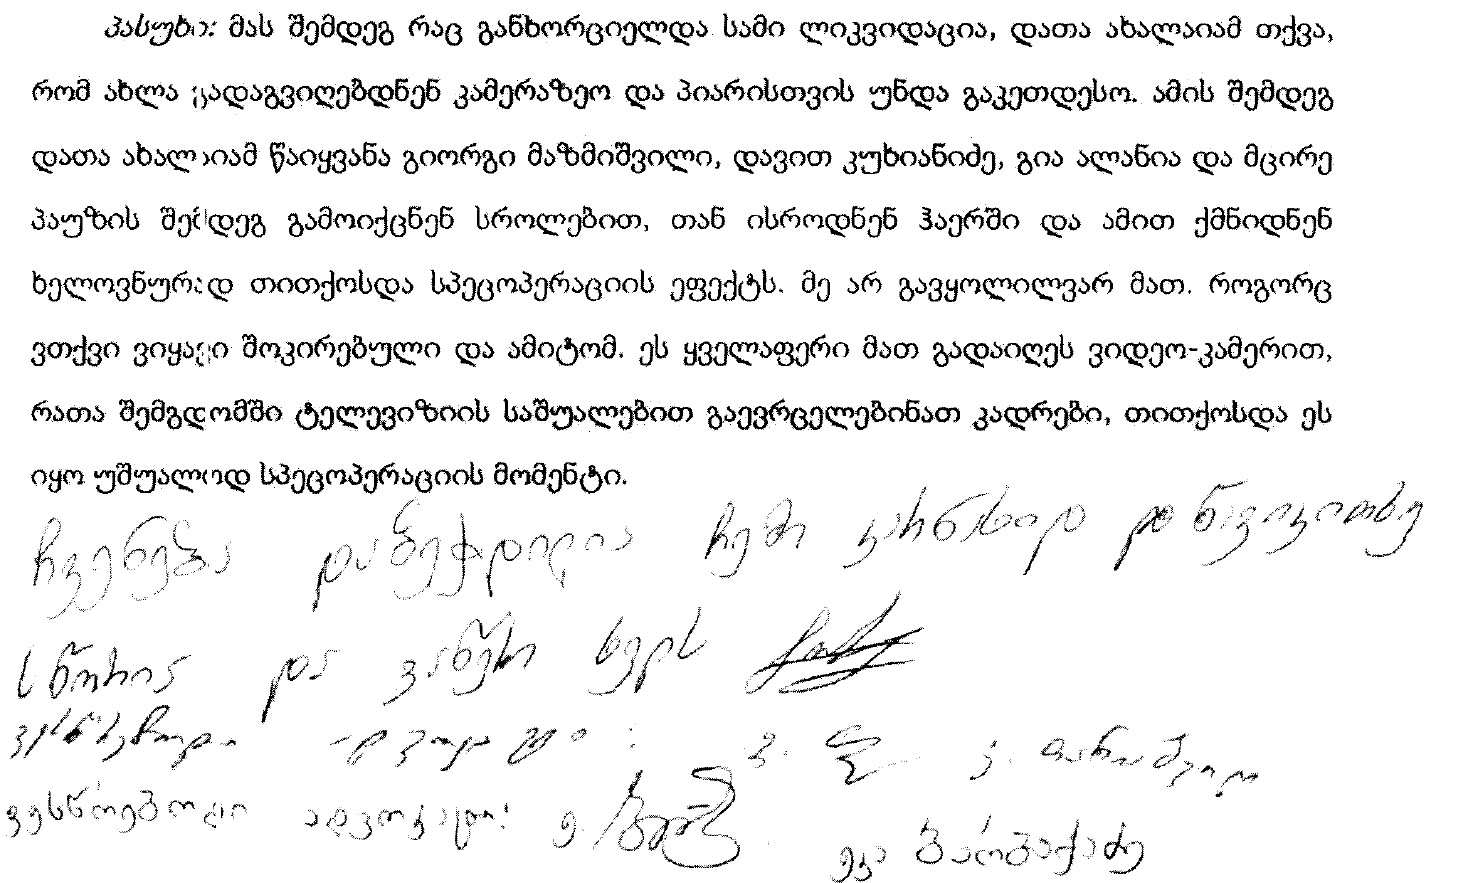 პასუხი: მას შემდეგ რაც განხორციელდა სამი ლიკვიდაცია, დათა ახალაიამ თქვა,
რომ ახლა გადაგვიღებდნენ კამერაზეო და პიარისთვის უნდა გაკეთდესო. ამის შემდეგ
დათა ახალაიამ წაიყვანა გიორგი მაზმიშვილი, დავით კუხიანიძე, გია ალანია და მცირე
პაუზის შემდეგ გამოიქცნენ სროლებით, თან ისროდნენ ჰაერში და ამით ქმნიდნენ
ხელოვნურად თითქოსდა სპეცოპერაციის ეფექტს. მე არ გავყოლილვარ მათ. როგორც
ვთქვი ვიყავი შოკირებული და ამიტომ. ეს ყველაფერი მათ გადაიღეს ვიდეო-კამერით,
რათა შემგდომში ტელევიზიის საშუალებით გაევრცელებინათ კადრები, თითქოსდა ეს
იყო უშუალოდ სპეცოპერაციის მომენტი.
ჩვენება დაბეჭდილია ჩემი კარნახით და წავიკითხე
სწორია და ვაწერ ხელს
ვესწრებოდი ადვოკატი კ.
ვესწრებოდი ადვოკატი ე. ეკა